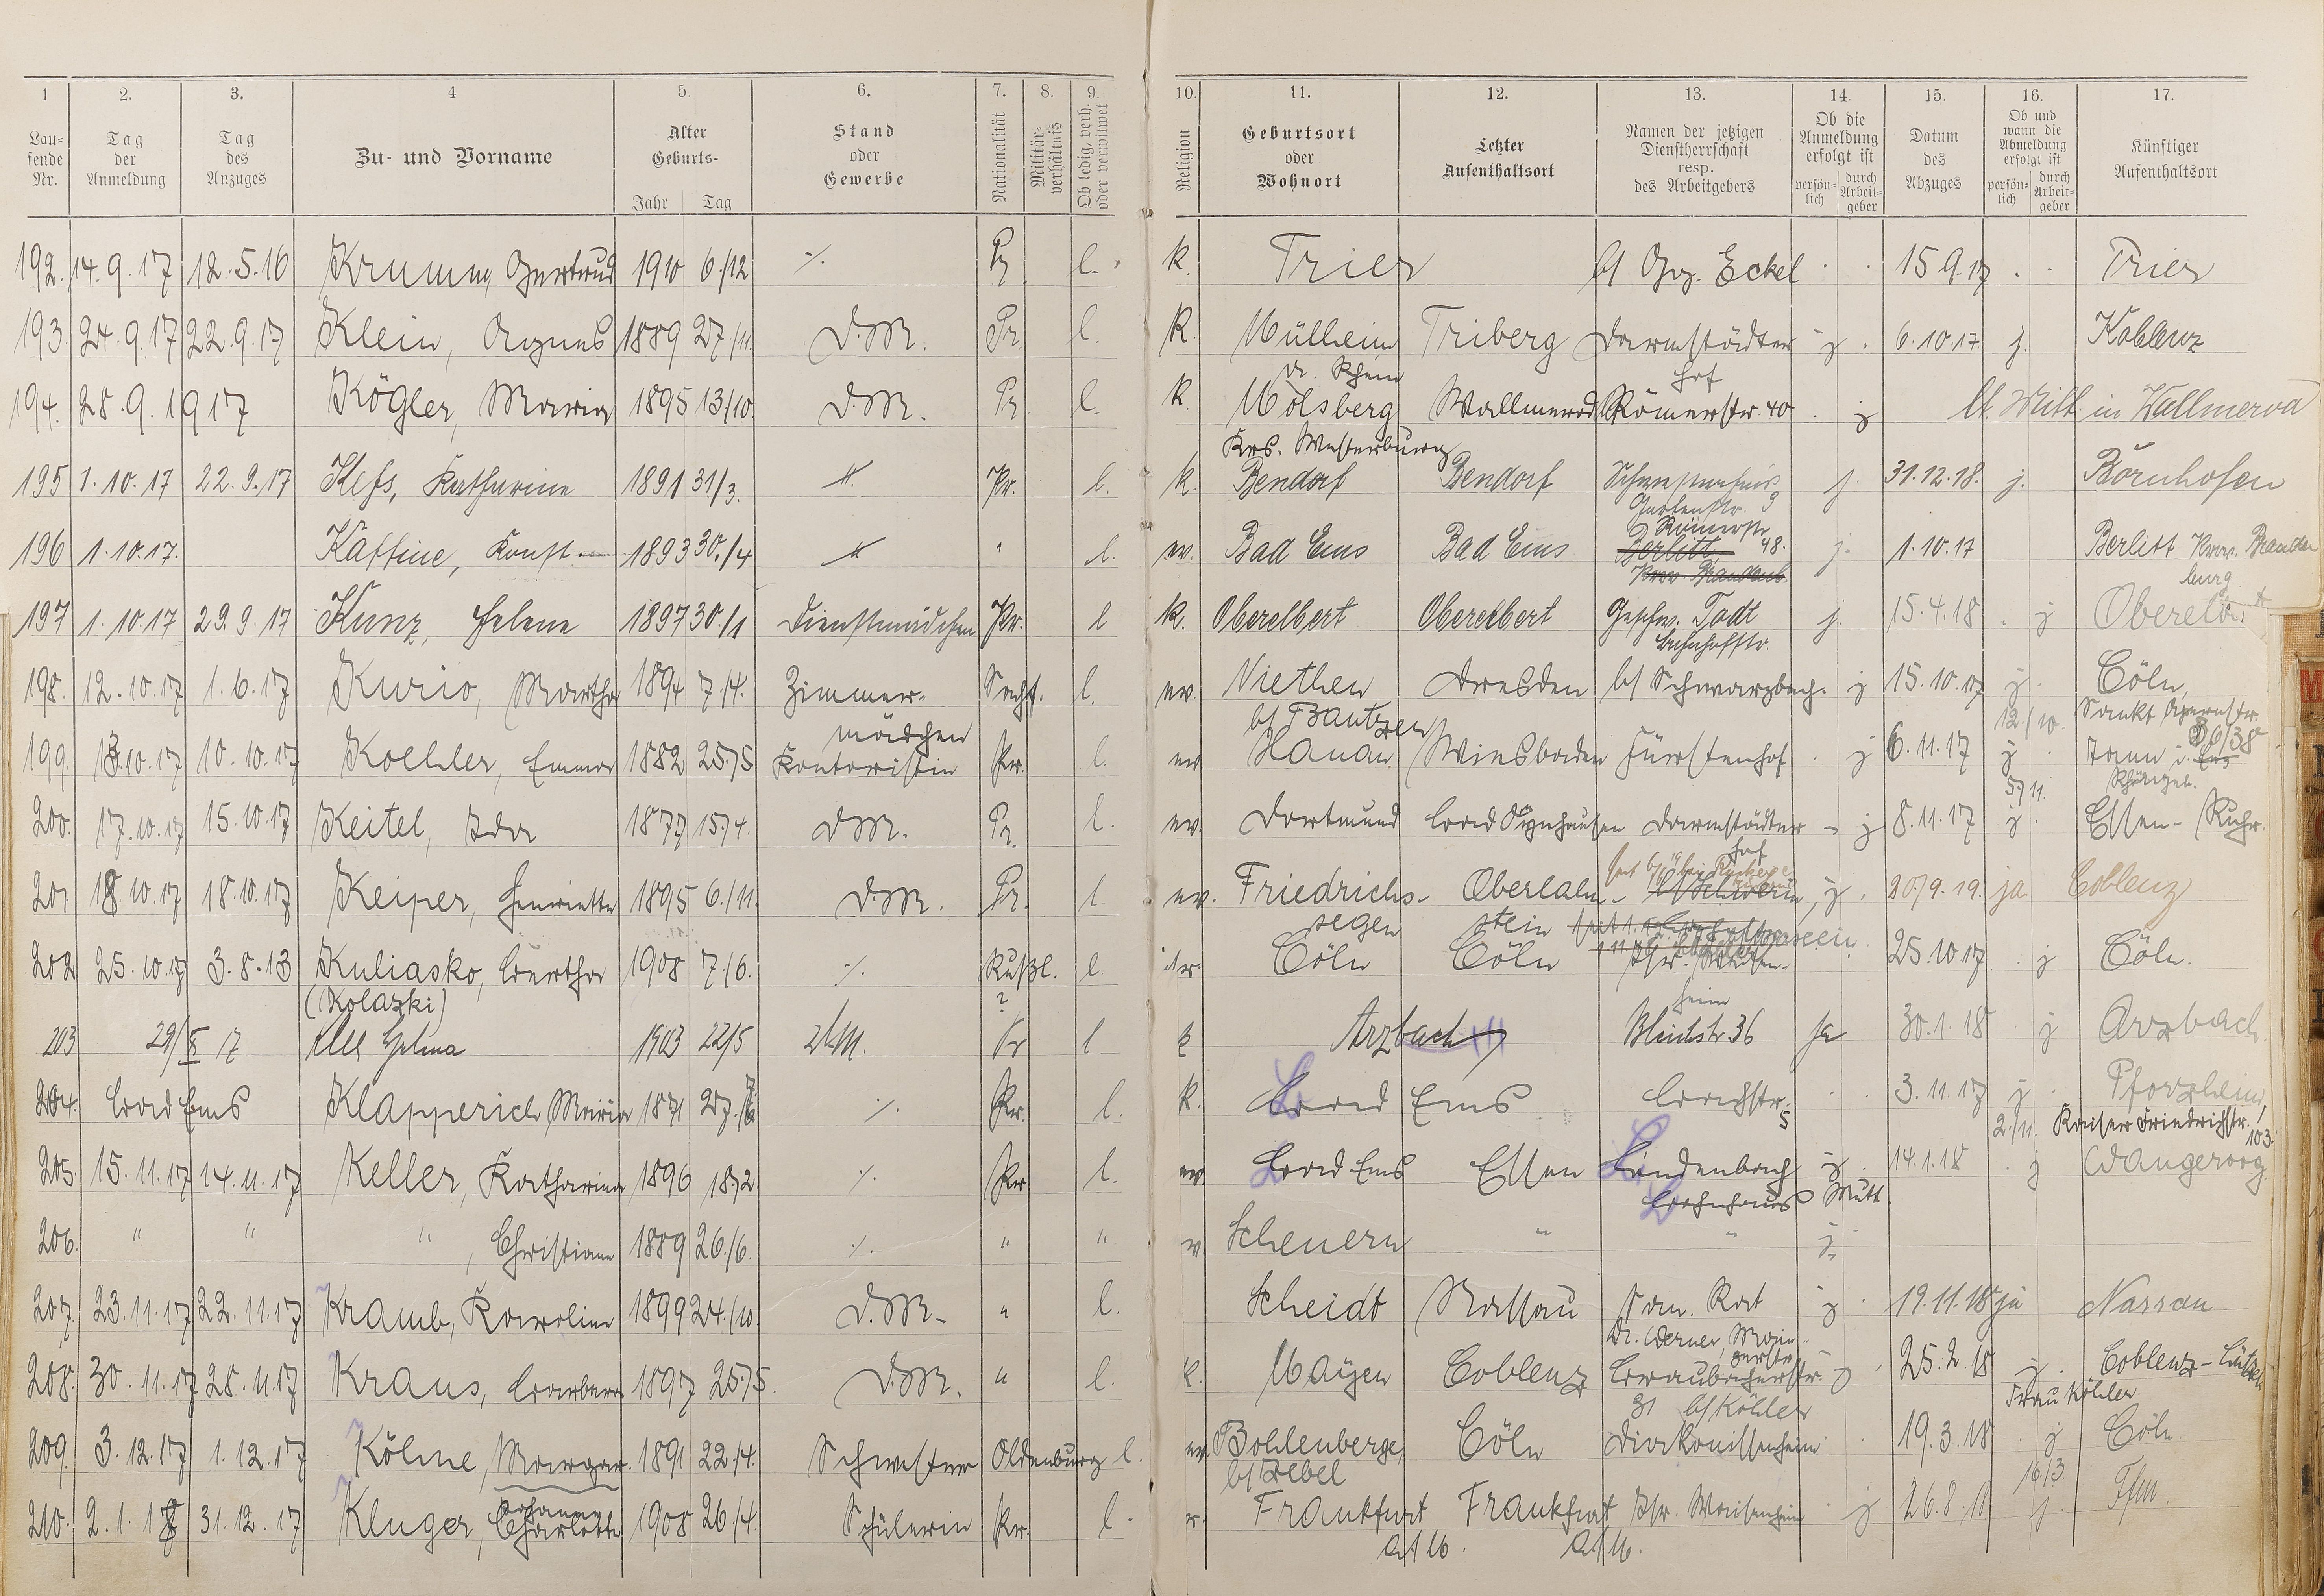 1 2. 3. 4 5. 6. 7. 8. 9. 10. 11. 12. 13. 14. 15. 16. 17.
Lau-
fende
Nr.
Tag
der
Anmeldung
Tag
des
Anzuges
Zu- und Vorname
Alter
Geburts-
Jahr Tag
Stand
oder
Gewerbe
Nationalität
Militär-
verhältnis
Ob ledig, verh.
oder verwitwet
Religion
Geburtsort
oder
Wohnort
Letzter
Aufenthaltsort
Namen der jetzigen
Dienstherrschaft
resp.
des Arbeitgebers
Ob die
Anmeldung
erfolgt ist
persön-
lich
durch
Arbeit-
geber
Datum
des
Abzuges
Ob und
wann die
Abmeldung
erfolgt ist
persön-
lich
durch
Arbeit-
geber
Künftiger
Aufenthaltsort
192. 14.9.17 12.5.16 Krumm, Gertrud 1910 6./12 ./. Pr l. k. Trier b/ Eckel 15 9.17 Trier
193. 24.9.17 22.9.17 Klein, Agnes 1889 27/11. D.M. Pr. l. k. Mülheim Triberg Darmstädter j. 6.10.17. j. Koblenz
a. Rhein hof
194. 28.9.1917 Kögler, Maria 1895 13/10. D.M. Pr l. k. Molsberg Wallmerod Römerstr. 40 j lt. Mitt. in Wallmerod
Krs. Westerburg
195 1.10.17 22.9.17 Kefs, Katharine 1891 31/3. Pr. l. k. Bendorf Bendorf j. 31.12.18. j. Bornhofen
Gartenstr. 9
196 1.10.17. Kaffine, Konst. 1893 30./4 " l. ev. Bad Ems Bad Ems Römerstr. 48. j. 1.10.17 Berlitt Prov. Branden
Berlitt burg
Prov. Brandenb.
197 1.10.17 29.9.17 Kunz, Helene 1897 30./1 Dienstmädchen Pr. l k. Oberelbert Oberelbert Geschw. Tadt j. 15.4.18 j Oberelbert
Bahnhofstr.
198. 12.10.17 1.6.17 Kurio, Martha 1894 7./4. Zimmer- Sachs. l. ev. Niethen Dresden b/ Schwarzbach. j 15.10.17 j. Cöln,
mädchen b/ Bautzen 12./10. Sankt Apernstr.
36/38
199. 13.10.17 10.10.17 Koehler, Emma 1882 25./5 Kontoristin Pr. l. ev. Hanau Wiesbaden Fürstenhof j 6.11.17 j Tann
5./11. Rhöngeb.
200. 17.10.17 15.10.17 Keitel, Ida 1877 15./4. D.M. Pr. l. ev. Dortmund Bad Oynhausen Darmstädter j 8.11.17 j. Essen-Ruhr.
hof
201. 18.10.17 18.10.17 Keiper, Henriette 1895 6./11. D.M. Pr. l. ev. Friedrichs- Oberlahn- j. 20./9.19. ja Coblenz
segen stein
202 25.10.17 3.8.13 Kuliasko, Bertha 1908 7./6. ./. Rußl. l. isr. Cöln Cöln Isr. Waisen- 25.10.17 j Cöln.
(Kolazki) ? heim
203 29/X 17 Klee Helma 1903 22/5 Pr l k Arzbach Bleichstr 36 ja 30.1.18 j Arzbach
204. Bad Ems Klapperich, Maria 1871 27./ ./. Pr. l. k. Bad Ems Bachstr. 5 3.11.17 j. Pforzheim,
2./11. Kaiser Friedrichstr. 103.
205. 15.11.17 14.11.17 Keller, Katharina 1896 18./2 ./. Pr. l. ev. Bad Ems Essen Lindenbach j. 14.1.18 j Wangeroog.
Mutt.
206. " " " , Christiane 1889 26./6. ./. " " Scheuern " " j.
207. 23.11.17 22.11.17 Kramb, Karoline 1899 24./10. D.M. " l. Scheidt Nassau San. Rat j. 19.11.18 ja Nassau
Dr. Werner, Main-
zerstr.
208. 30.11.17 28.11.17 Kraus, Barbara 1897 25./5. D.M. " l. k. Mayen Coblenz Braubacherstr. j 25.2.18 j. Coblenz-Lützel
31 b/ Köhler Frau Köhler
209. 3.12.17 1.12.17 Kölne, Margar. 1891 22./4. Schwester Oldenburg l. ev. Bohlenberge, Cöln Diakonissenheim 19.3.18 j Cöln
b/ Zebel 16./3.
210. 2.1.18 31.12.17 Kluger, Johanna 1908 26./4. Schülerin Pr. l. Frankfurt Frankfurt Isr. Waisenheim j 26.8.18 j. Ffm.
Charlotte a/M. a/M.